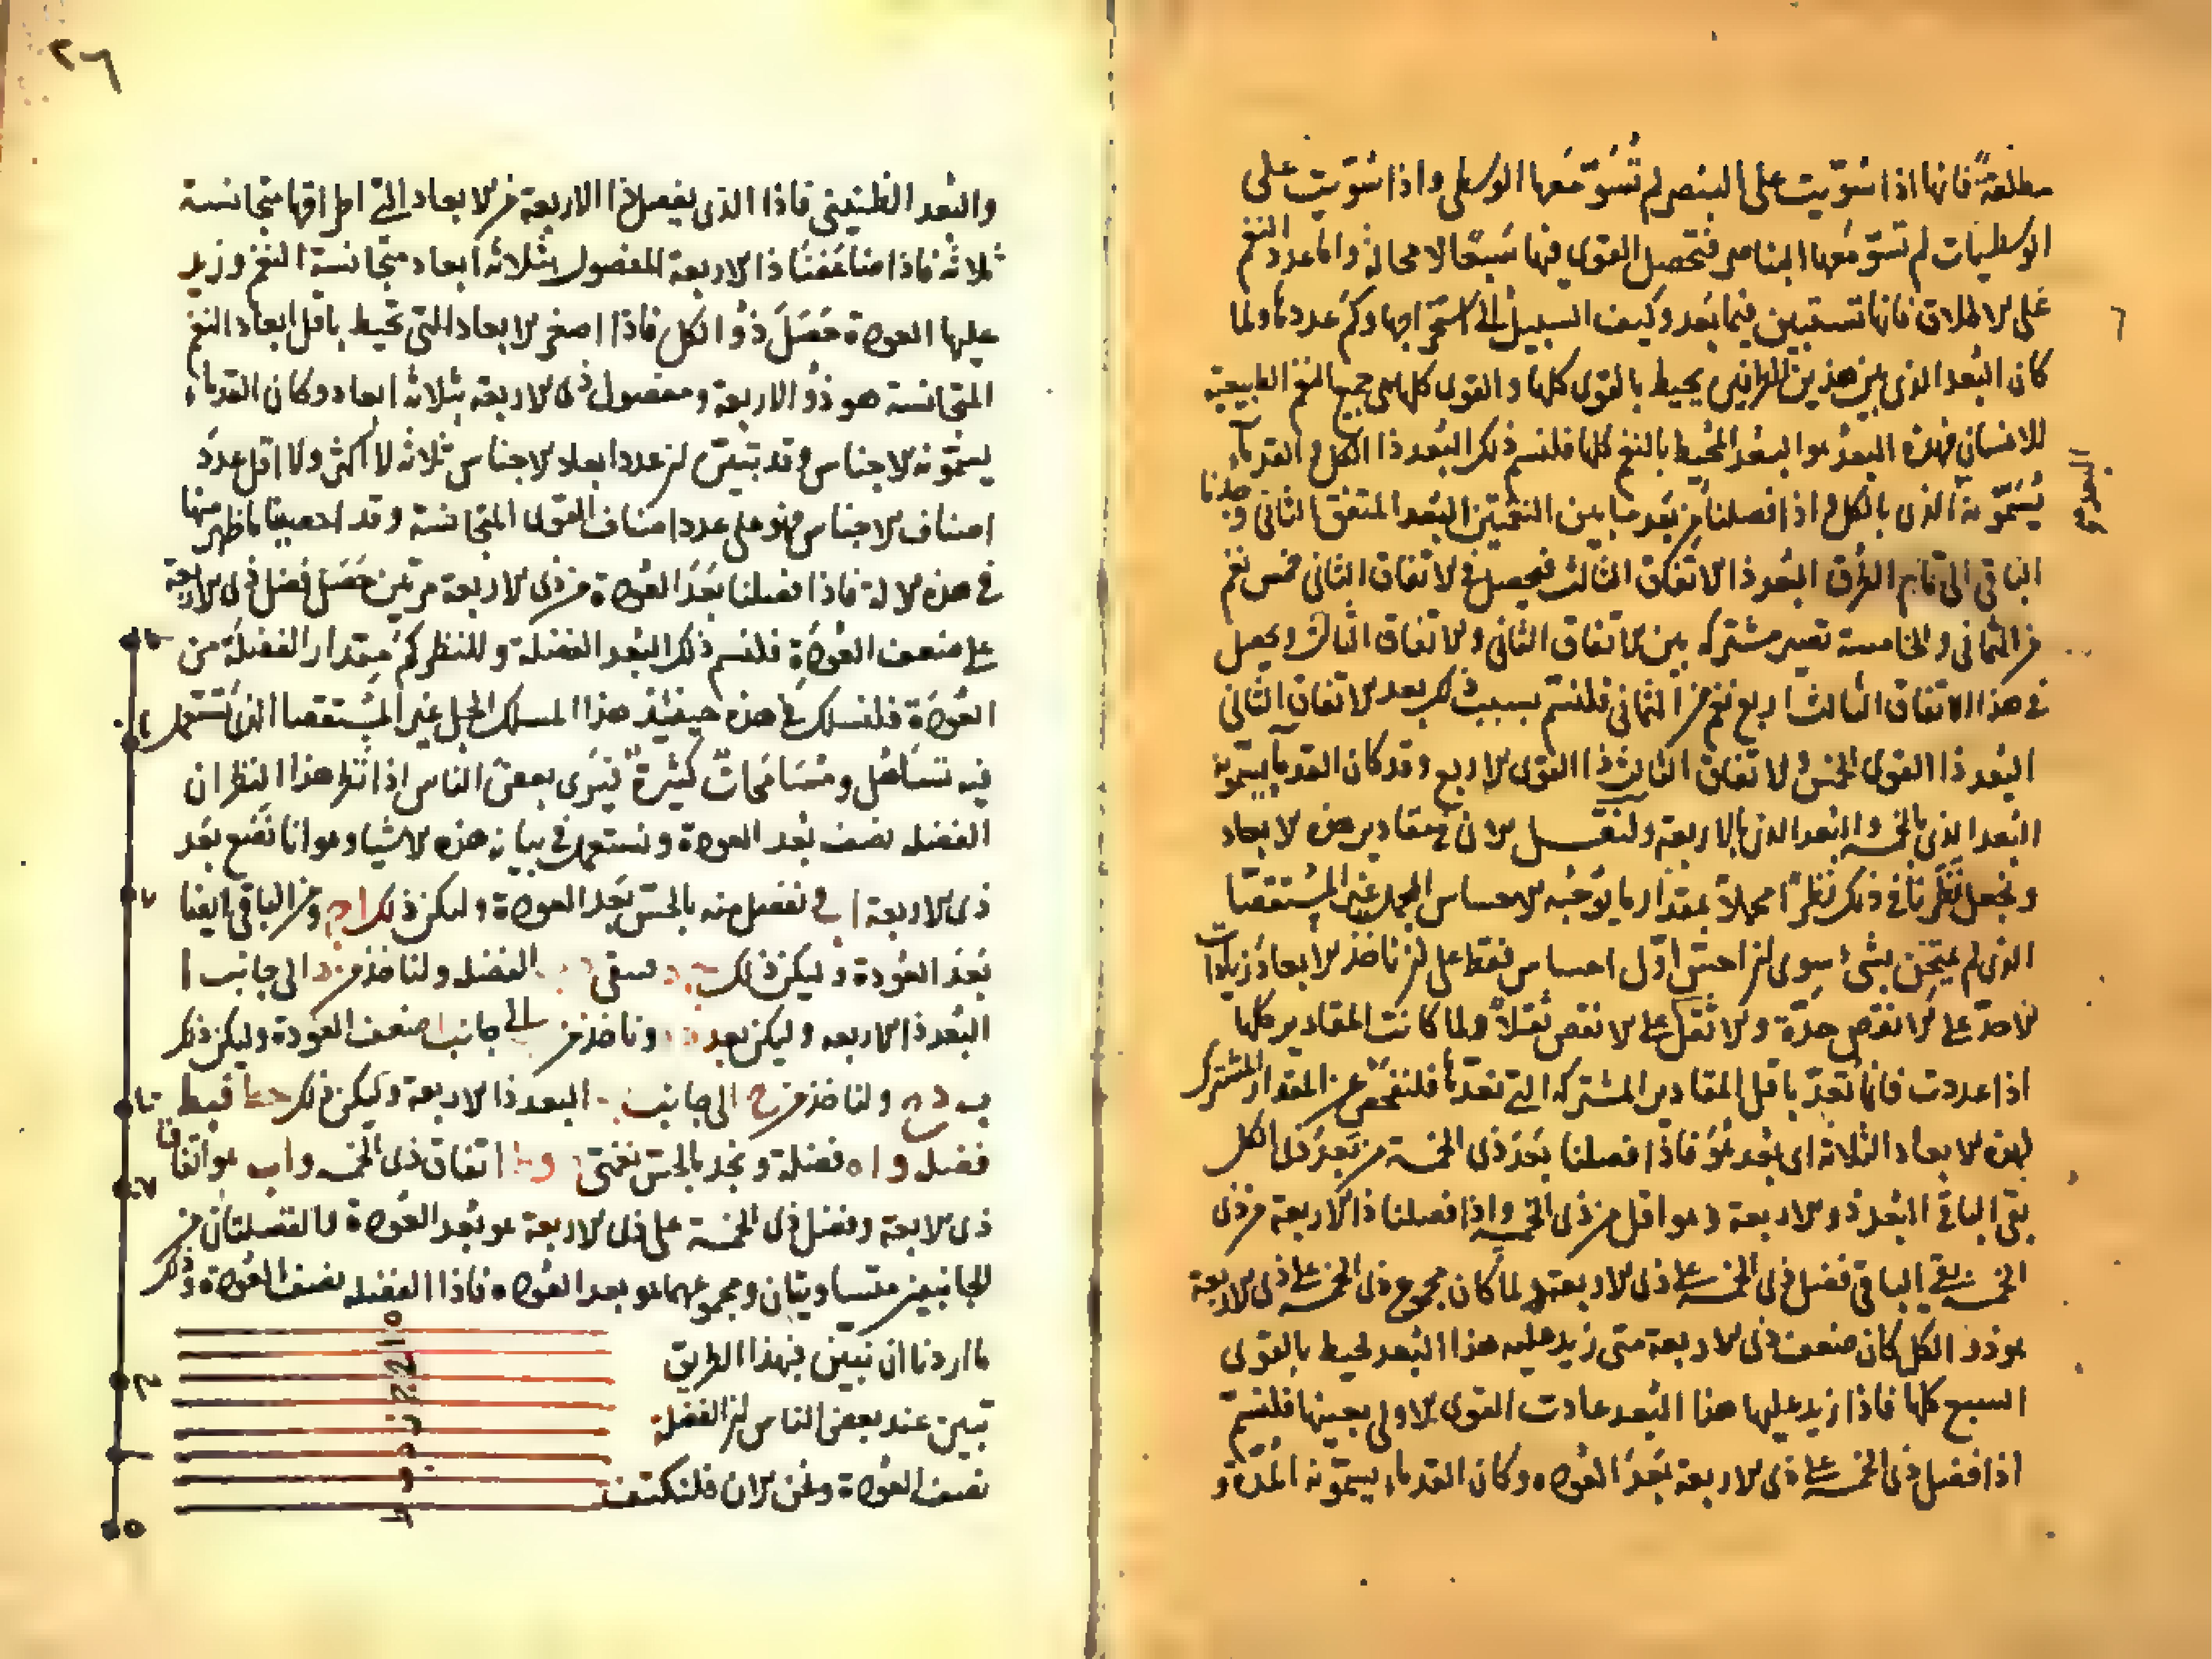 مطلقة فانها اذا سويت على البنصر لم تسو معها الوسطى واذا سويت على
الوسطيات لم تسو معها البناصر فتحصل القوى فيها سبعا لا محالة واما عدد النغم
على الاطلاق فانها تستبين فيما بعد وكيف السبيل الى استخراجها وكم عددها ولما
كان البعد الذى بين هذين الطرفين يحيط بالقوى كلها والقوى كلها هى جميع النغم الطبيعية
للانسان فهذه البعد هو البعد المحيط بالنغم كلها فلنسم ذلك البعد ذا الكل والقدماء
يسمونه الذى بالكل واذا فصلنا من بعد ما بين النغمتين البعد المتفق الثانى وجدنا
الباقى الى تمام الطرف البعد ذا الاتفاق الثالث فيحصل فى الاتفاق الثانى خمس نغم
من الثمانى والخامسة تصير مشتركة بين الاتفاق الثانى والاتفاق الثالث ويحصل
فى هذا الاتفاق الثالث اربع نغم من الثمانى فلنسم بسبب ذلك بعد الاتفاق الثانى
البعد ذا القوى الخمس والاتفاق الثالث ذا القوى الاربع وقد كان القدماء يسمونه
البعد الذى بالخمسة والبعد الذى بالاربعة ولنقل الان فى مقادير هذه الابعاد
ونجعل نظرنا فى ذلك نظرا مجملا بمقدار ما يوجبه الاحساس المجمل غير المستقصا
الذى لم يمتحن بشئ سوى ان احس اول احساس فقط على ان ناخذ الابعاد زيادات
الاحد على الانقص حدة والاثقل على الانقص ثقلا ولما كانت المقادير كلها
اذا عددت فانها تعد باقل المقادير المشتركة التى تعدها فلنفحص عن المقدار المشترك
لهذه الابعاد الثلاثة اى بعد هو فاذا فصلنا بعد ذى الخمسة من بعد ذى الكل
بقى الباقى البعد ذو الاربعة وهو اقل من ذى الخمسة واذا فصلنا ذا الاربعة من ذى
الخمسة بقى الباقى فضل ذى الخمسة على ذى الاربعة ولما كان مجموع ذى الخمسة على ذى الاربعة
هو ذو الكل كان ضعف ذى الاربعة متى زيد عليه هذا البعد لحيط بالقوى
السبع كلها فاذا زيد عليها هذا البعد عادت القوى الاولى بعينها فلنسم
اذا فضل ذى الخمسة على ذى الاربعة بعد العودة وكان القدماء يسمونه المدة و
٢٦
والبعد الطنينى فاذا الذى يفصل ذا الاربعة من الابعاد التى اطرافها متجانسة
ثلاثة فاذا ضاعفنا ذا الاربعة المفصول بثلاثة ابعاد متجانسة النغم وزيد
عليها العودة حصل ذو الكل فاذا اصغر الابعاد التى تحيط باقل ابعاد النغم
المتجانسة هو ذو الاربعة ومفصول ذى الاربعة بثلاثة ابعاد وكان القدماء
يسمونه الاجناس وقد تبين ان عدد ابعاد الاجناس ثلاثة لا اكثر ولا اقل عدد
اصناف الاجناس فهو على عدد اصناف القوى المتجانسة وقد احصينا ما ظهر منها
فى هذه الالة فاذا فصلنا بعد العودة من ذى الاربعة مرتين حصل فضل ذى الاربعة
على ضعف العودة فلنسم ذلك البعد الفضلة ولننظر كم مقدار الفضلة من
العودة فلنسلك فى هذه حينئذ هذا المسلك المجمل غير المستقصا الذى تستعمل
فيه تساهل ومسامحات كثيرة فيرى بعض الناس اذا نظر هذا النظر ان
الفضلة نصف بعد العودة ونستعمل فى بيانه هذه الاشيا وهو انا نضع بعد
ذى الاربعة ا فى نفصل منه بالحس بعد العودة وليكن ذلك ا ج ومن الباقى ايضا
بعد العودة وليكن ذلك ج د فبقى الفضلة ولناخذ من د الى جانب ا
البعد ذا الاربعة وليكن بعد وناخذ من الى جانب ا ضعف العودة وليكن ذلك
ولناخذ من ح الى جانب ب البعد ذا الاربعة وليكن ذلك ح ط فبط
فضل و ا ه فضلة ونجد بالحس نغمتى و ط اتفاق ذى الخمسة و ا ب هو اتفاق
ذى الاربعة وفضل ذى الخمسة على ذى الاربعة هو بعد العودة فالفضلتان من
الجانبين متساويتان ومجموعهما هو بعد العودة فاذا الفضلة نصف العودة وذلك
ما اردنا ان نبين فبهذا الطريق
تبين عند بعض الناس ان الفضلة
نصف العودة ونحن الان فلنكتف